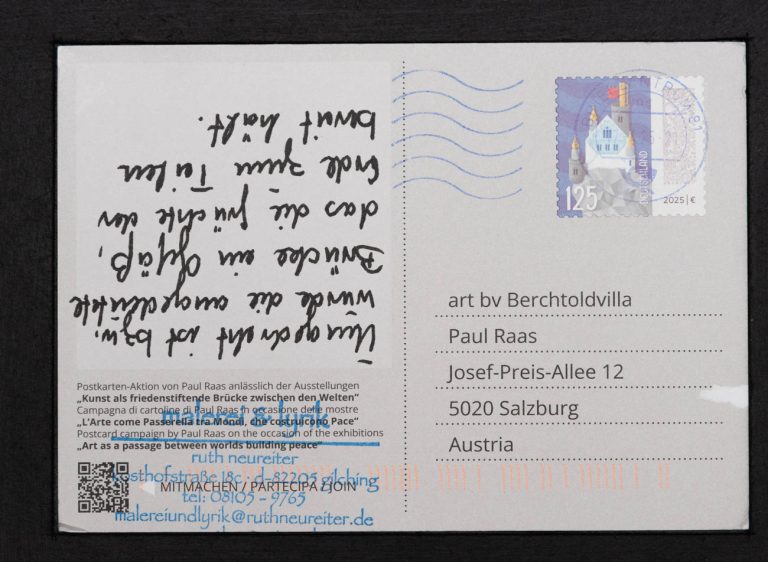 Umgedreht ist bzw.
wurde die angedeutete
Brücke ein Gefäß,
das die Früchte der
Erde zum Teilen
bereit hält.
125
DEUTSCHLAND
2025 | €
81
art bv Berchtoldvilla
Paul Raas
Josef-Preis-Allee 12
5020 Salzburg
Austria
Postkarten-Aktion von Paul Raas anlässlich der Ausstellungen
„Kunst als friedenstiftende Brücke zwischen den Welten”
Campagna di cartoline di Paul Raas in occasione delle mostre
„L'Arte come Passerella tra Mondi, che costruicono Pace”
Postcard campaign by Paul Raas on the occasion of the exhibitions
„Art as a passage between worlds building peace”
MITMACHEN / PARTECIPA / JOIN
malerei & lyrik
ruth neureiter
18c · d-82205 gilching
tel: 08105 - 9765
malereiundlyrik@ruthneureiter.de